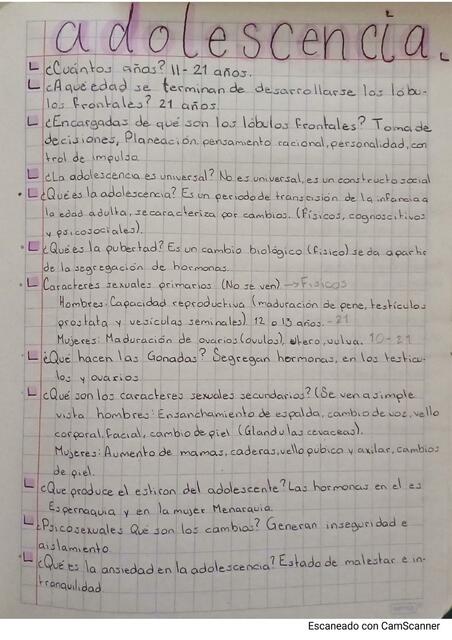 adolescencia.
¿Cuántos años? 11-21 años.
¿A qué edad se terminan de desarrollarse los lóbu-
los frontales? 21 años
¿Encargadas de qué son los lóbulos frontales? Toma de
decisiones, Planeación, pensamiento racional, personalidad, con
trol de impulso
¿La adolescencia es universal? No es universal, es un constructo social
¿Qué es la adolescencia? Es un periodo de transcisión de la infancia a
la edad adulta, se caracteriza por cambios. (físicos, cognoscitivos
y psicosociales).
¿Qué es la pubertad? Es un cambio biológico (físico) se da a partir
de la segregación de hormonas.
Caracteres sexuales primarios (No se ven) → Físicos
Hombres: Capacidad reproductiva (maduración de pene, testículos
prostata y vesículas seminales) 12 o 13 años. -21
Mujeres: Maduración de ovarios (óvulos), utero, vulva. 10-21
¿Qué hacen las Gonadas? Segregan hormonas, en los testícu-
los y ovarios
¿Qué son los caracteres sexuales secundarios? (Se ven a simple
vista hombres: Ensanchamiento de espalda, cambio de voz, vello
corporal, facial, cambio de piel (Glandulas cevaceas).
Mujeres: Aumento de mamas, caderas, vello pubico y axilar, cambios
de piel.
¿Que produce el estiron del adolescente? Las hormonas en el es
Espernaquia y en la mujer Menarquia
¿Psicosexuales Qué son los cambios? Generan inseguridad e
aislamiento
¿Qué es la ansiedad en la adolescencia? Estado de malestar e in-
tranquilidad
Escaneado con CamScanner